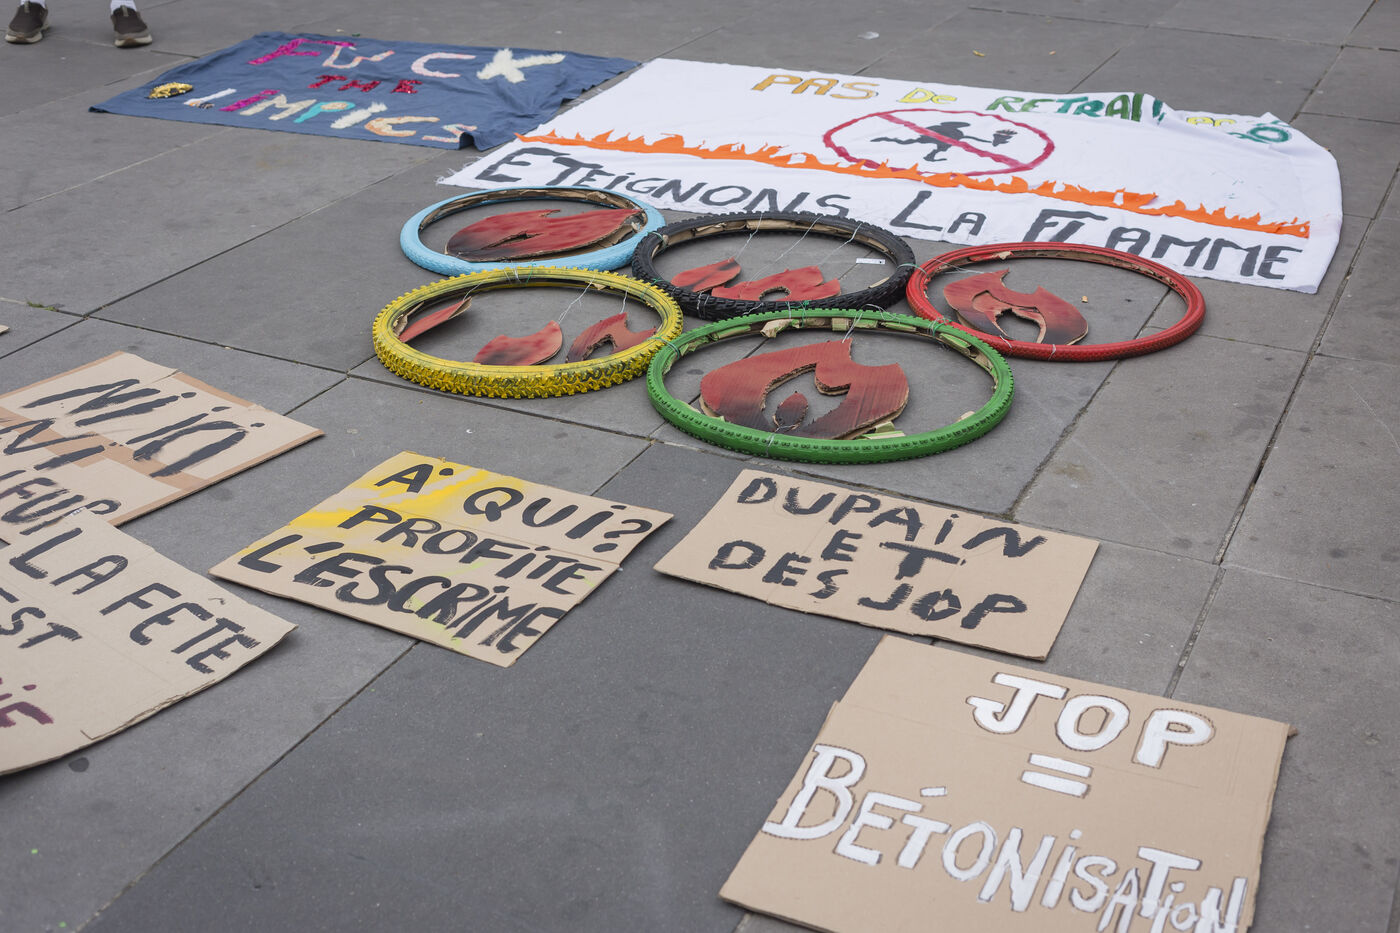 FUCK
THE
LIMPICS
PAS DE RETRAIT
ETEIGNONS LA FLAMME
NI ICI
NI
LA FÊTE
EST
A QUI?
PROFITE
L'ESCRIME
DUPAIN
ET
DES JOP
JOP
=
BÉTONISATION